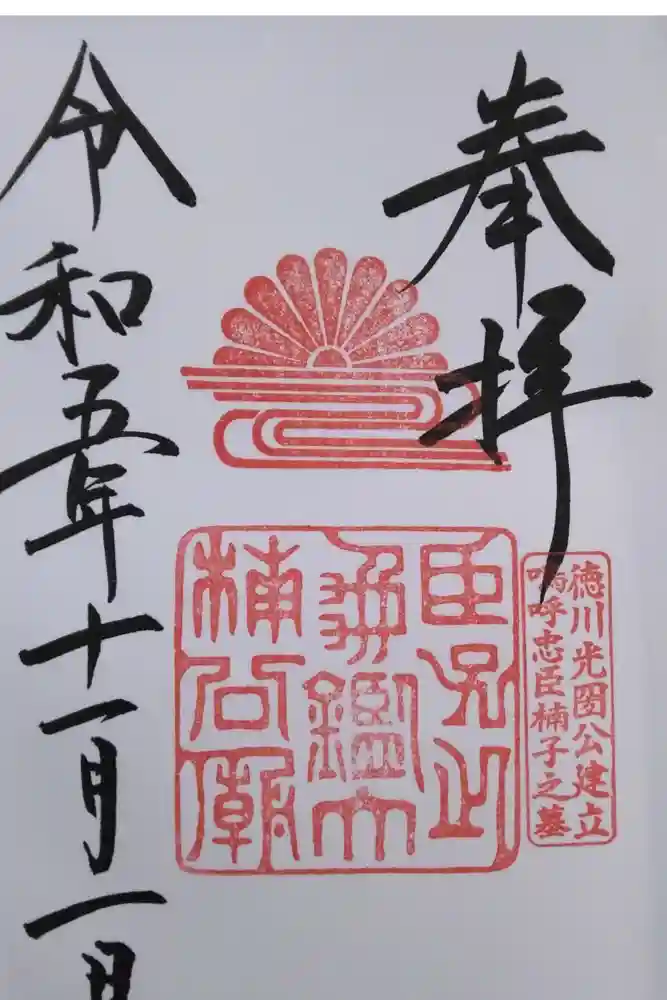 奉拝
徳川光圀公建立
嗚呼忠臣楠子之墓
臣子之
龜鑑大
楠公廟
令和五年十一月一日